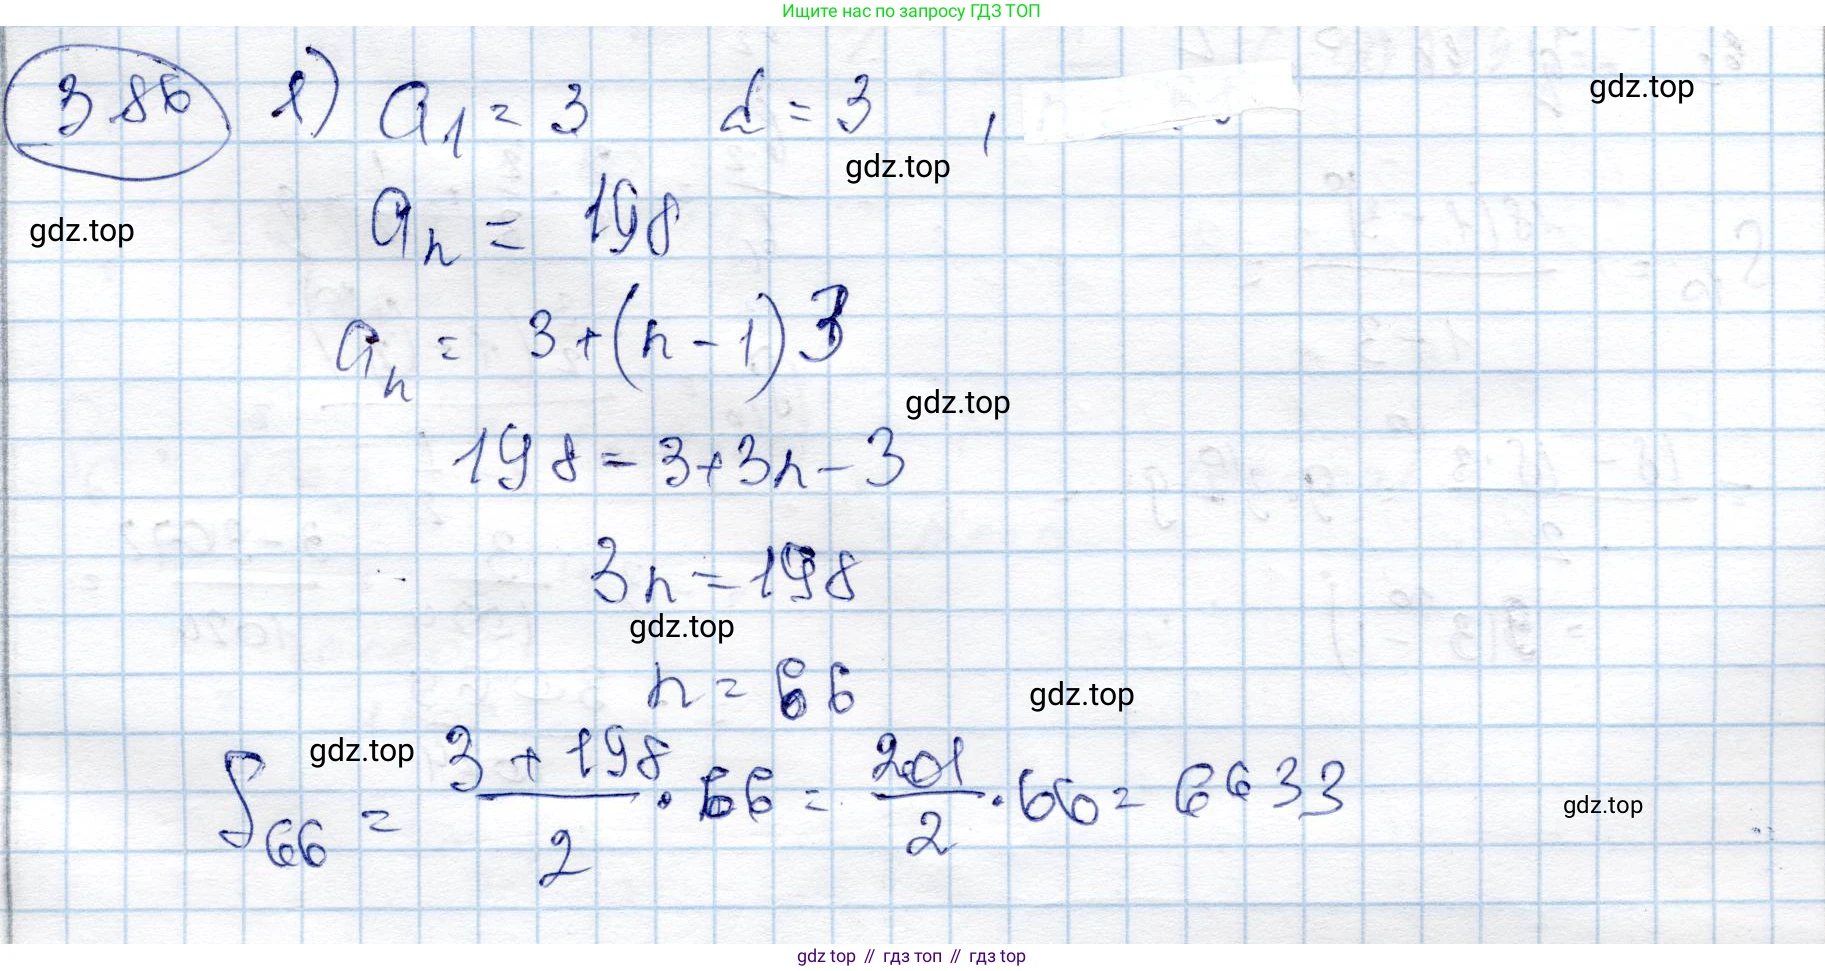 Ищите нас по запросу ГДЗ ТОП
386 1) a₁ = 3 d = 3 ,
gdz.top
gdz.top
aₙ = 198
gdz.top
aₙ = 3 + (n - 1) 3
gdz.top
198 = 3 + 3n - 3
3n = 198
gdz.top
n = 66
gdz.top
gdz.top
S₆₆ = (3 + 198)/2 · 66 = 201/2 · 66 = 6633
gdz.top
gdz top // гдз топ // gdz top